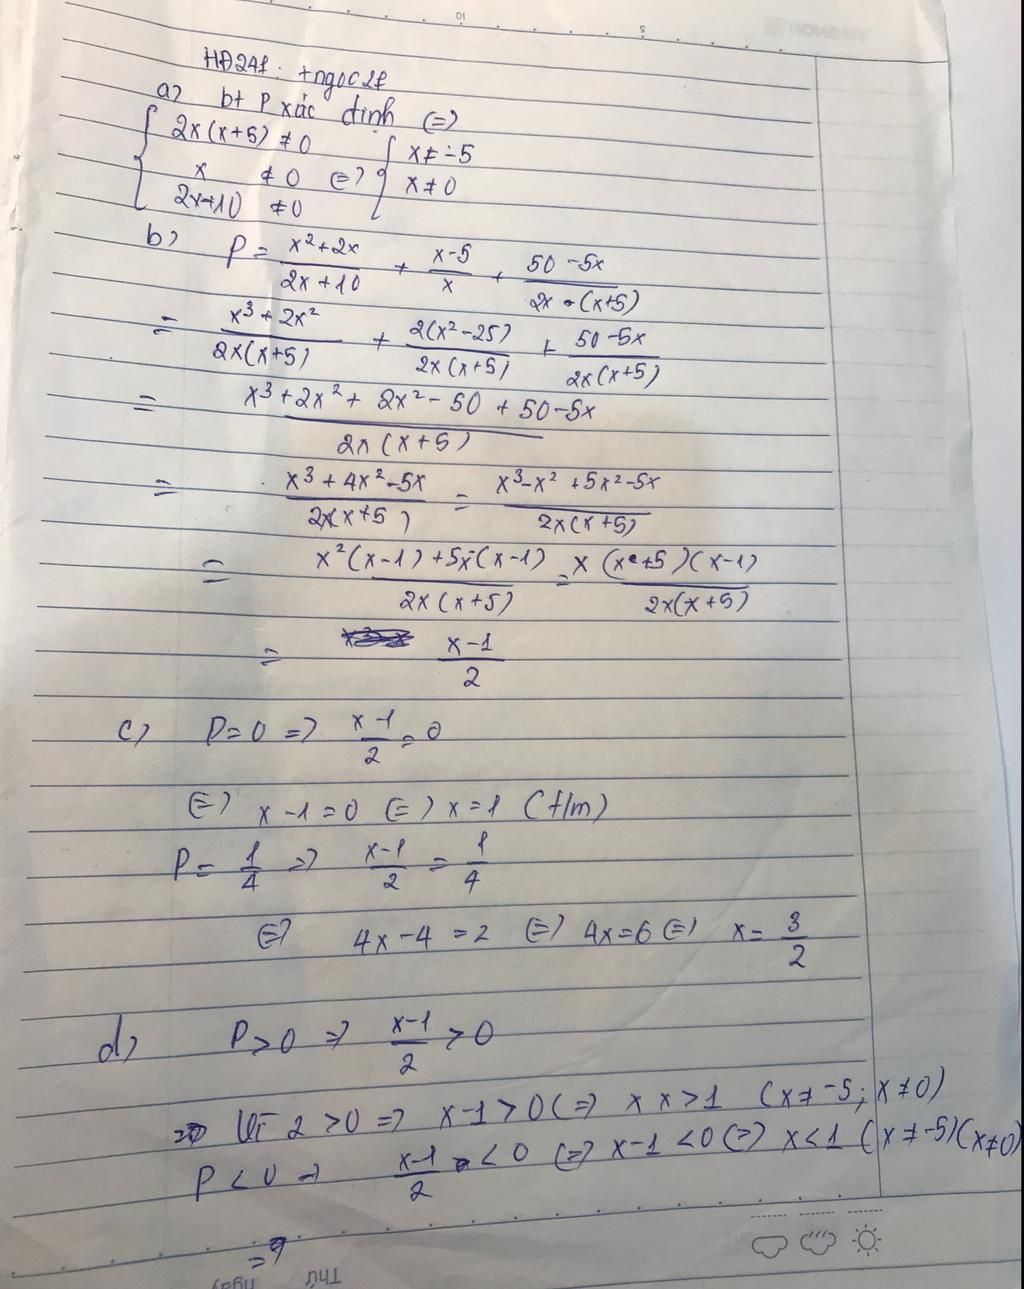 HĐ241: +ngoc21
a) bt P xác định (=)
{ 2x(x+5) ≠ 0
x ≠ 0 (=) { x ≠ -5
2x+10 ≠ 0 x ≠ 0
b) P = (x² + 2x)/(2x + 10) + (x-5)/x + (50 - 5x)/(2x · (x+5))
= (x³ + 2x²)/(2x(x+5)) + (2(x² - 25))/(2x(x+5)) + (50 - 5x)/(2x(x+5))
= (x³ + 2x² + 2x² - 50 + 50 - 5x)/(2x(x+5))
= (x³ + 4x² - 5x)/(2x(x+5)) = (x³ - x² + 5x² - 5x)/(2x(x+5))
= (x²(x-1) + 5x(x-1))/(2x(x+5)) = (x(x+5)(x-1))/(2x(x+5))
= (x-1)/2
c) P = 0 => (x-1)/2 = 0
(=) x - 1 = 0 (=) x = 1 (t/m)
P = 1/4 => (x-1)/2 = 1/4
(=) 4x - 4 = 2 (=) 4x = 6 (=) x = 3/2
d) P > 0 => (x-1)/2 > 0
Vì 2 > 0 => x - 1 > 0 (=) x x > 1 (x ≠ -5; x ≠ 0)
P < 0 => (x-1)/2 < 0 (=) x - 1 < 0 (=) x < 1 (x ≠ -5) (x ≠ 0)
Thứ
Ngày